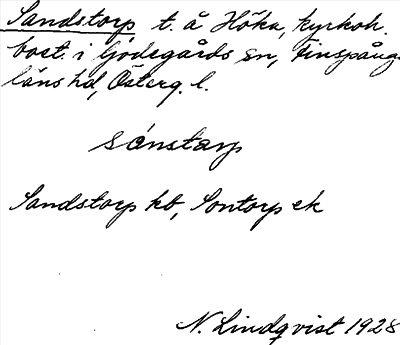 Sandstorp t. å Höka, kyrkoh.
bost. i Godegårds sn, Finspånga
läns hd, Österg. l.
sánstarp
Sandstorp kb, Sontorp ek
N. Lindqvist 1928